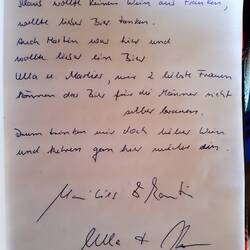 Klaus wollte keinen Wein aus Franken,
wollte lieber Bier tanken.
Auch Martin war hier und
wollte lieber ein Bier
Ulla u. Marlies, nur 2 liebste Frauen
können das Bier für die Männer nicht
selber brauen.
Drum trinken wir doch lieber Wein
und kehren gern hier wieder ein.
Marlies & Martin
Ulla +